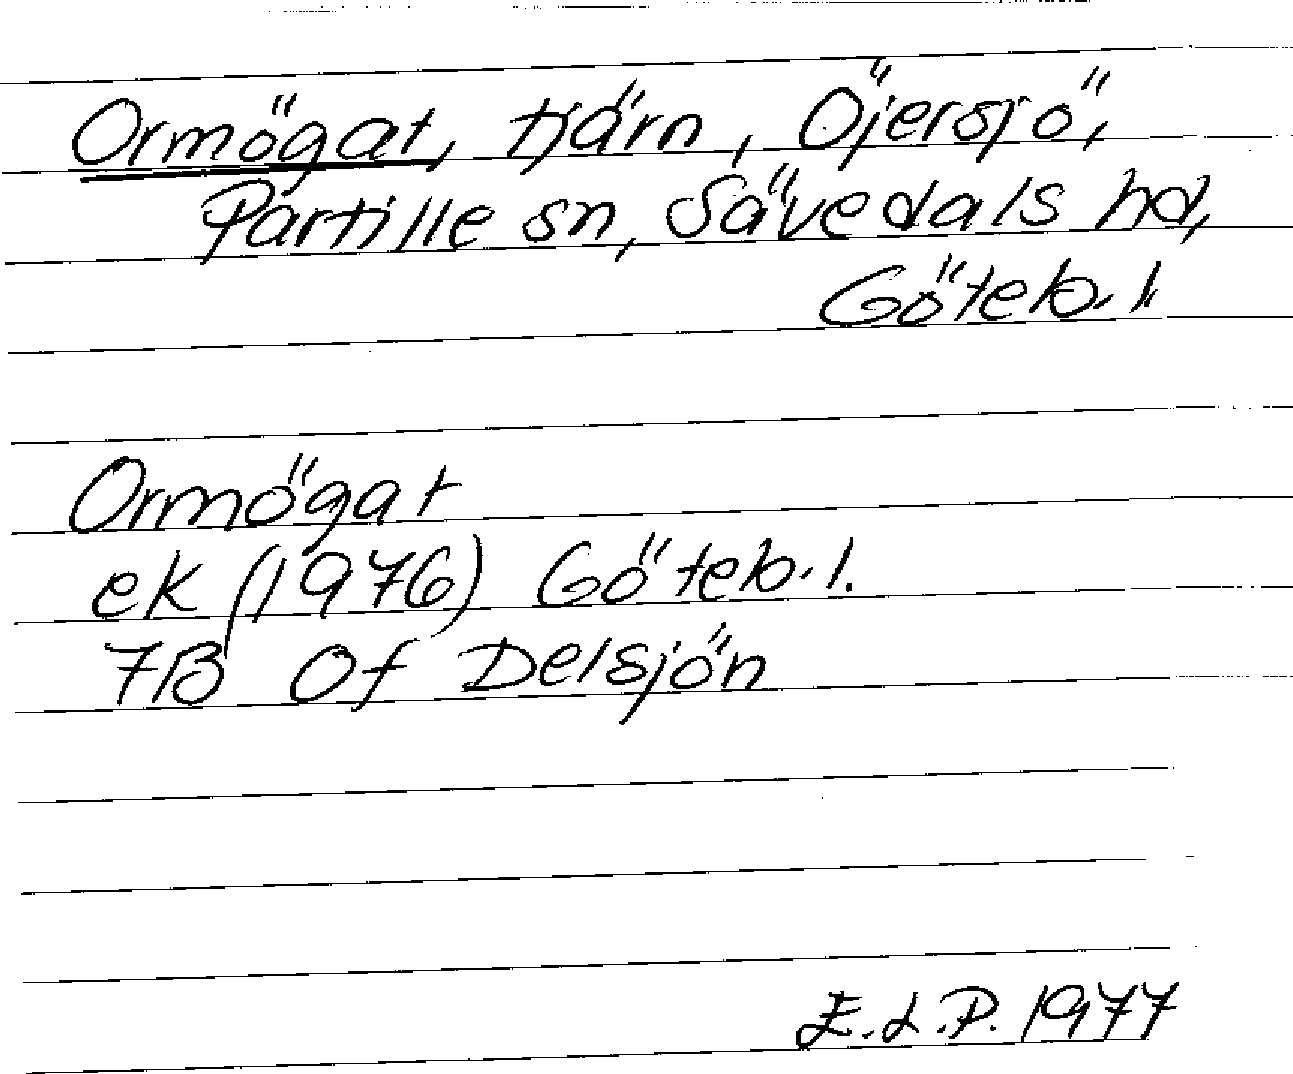 Ormögat, tjärn, Öjersjö,
Partille sn, Sävedals hd,
Göteb. l.
Ormögat
ek (1976) Göteb. l.
7B Of Delsjön
E.L.P. 1977